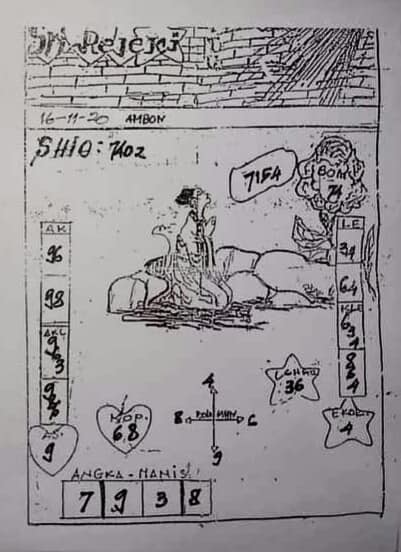 Sri Rejeki
16-11-20 AMBON
SHIO: 7402
7154
BOM
74
AK
96
98
9
3
AS
9
KOP.
68
4
8
POLA MAIN
6
9
LE
34
64
6
3
1
8
2
4
36
EKOR
4
ANGKA-MANIS
7 9 3 8